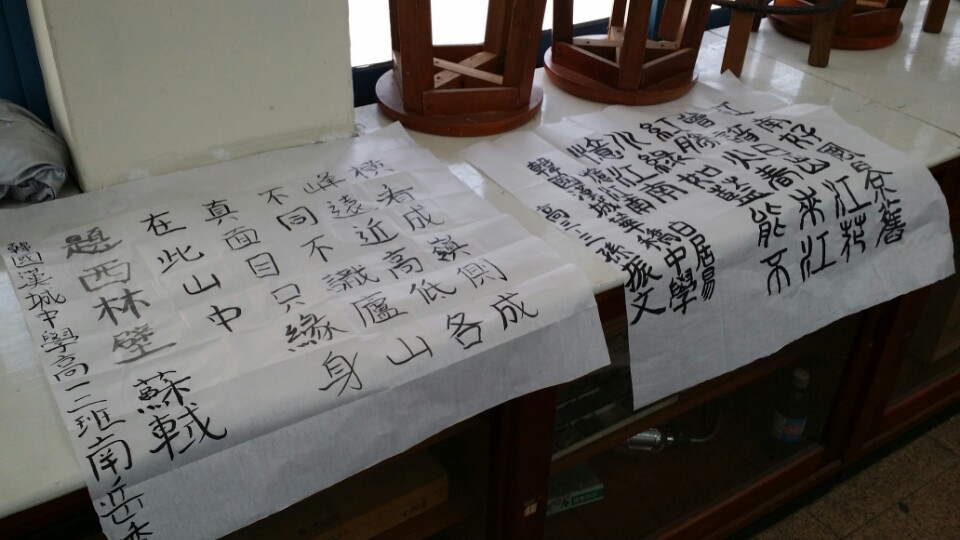 橫看成嶺側成
峰遠近高低各
不同不識廬山
真面目只緣身
在此山中
題西林壁 蘇軾
韓國漢城中學高二二班南岳
江南好風景舊
曾諳日出江花
紅勝火春來江
水綠如藍能不
憶江南 白居易
韓國漢城華僑中學
高三三孫振文